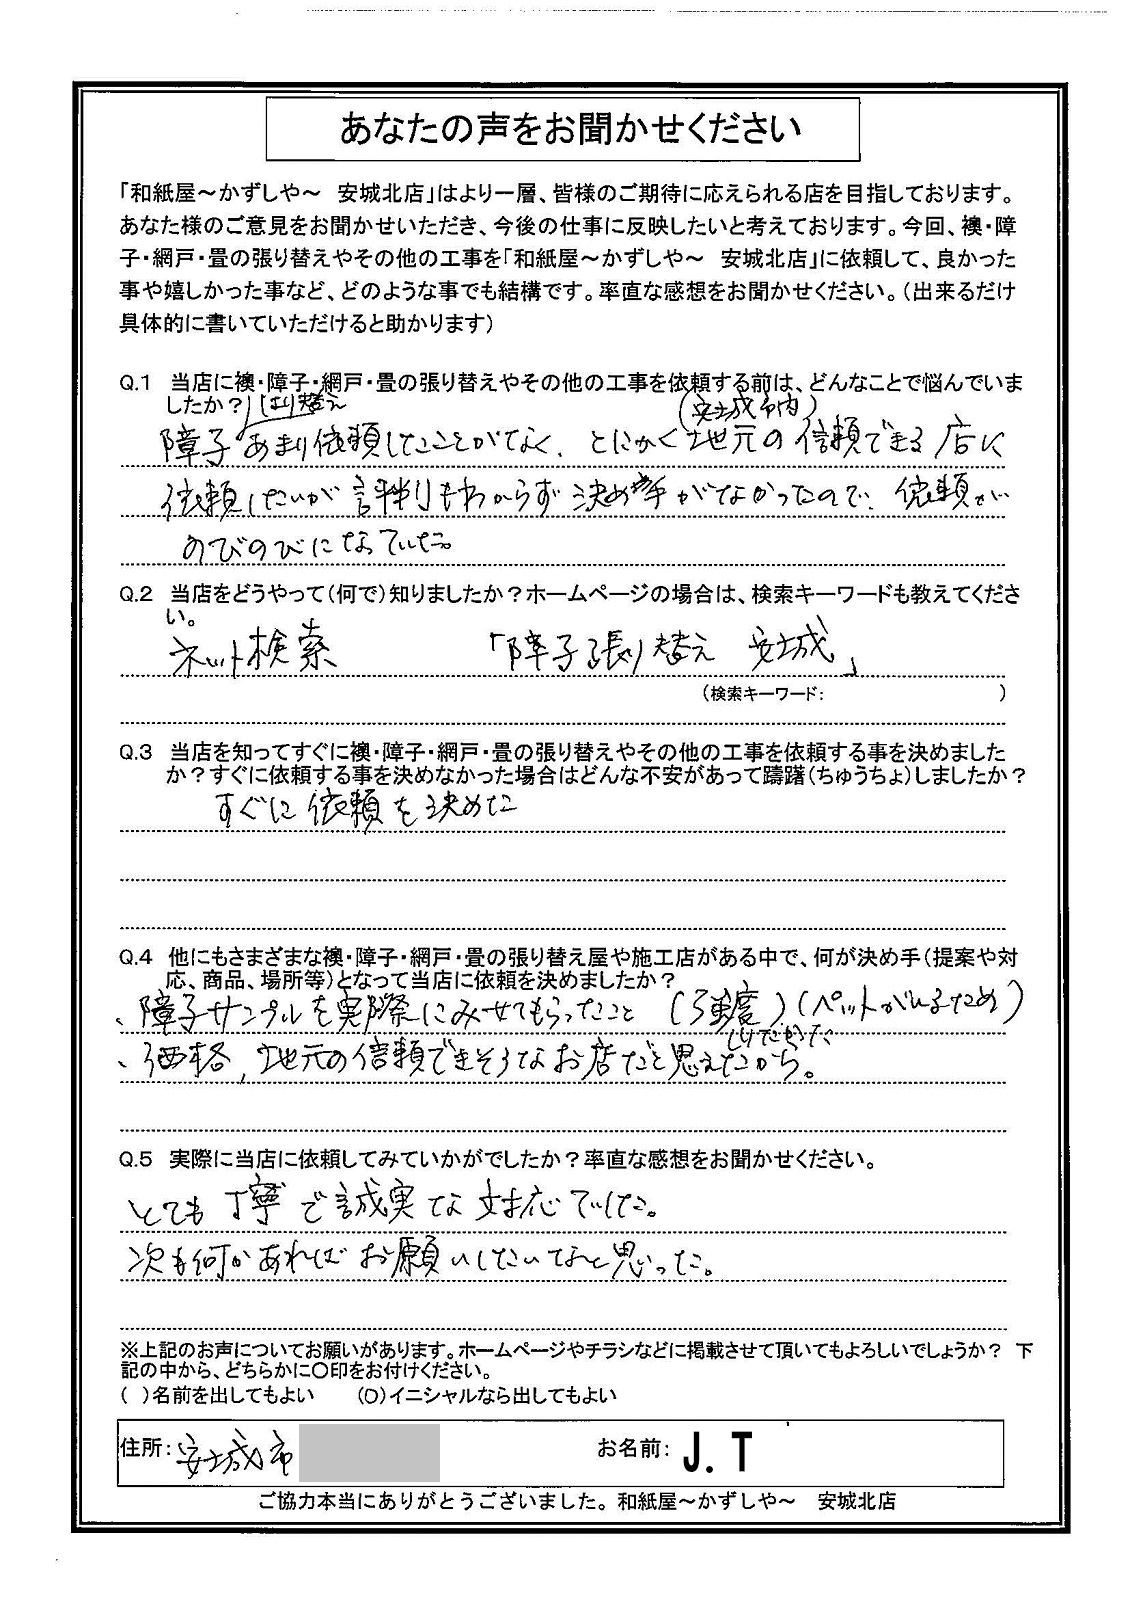 あなたの声をお聞かせください
「和紙屋～かずしや～　安城北店」はより一層、皆様のご期待に応えられる店を目指しております。
あなた様のご意見をお聞かせいただき、今後の仕事に反映したいと考えております。今回、襖・障
子・網戸・畳の張り替えやその他の工事を「和紙屋～かずしや～　安城北店」に依頼して、良かった
事や嬉しかった事など、どのような事でも結構です。率直な感想をお聞かせください。（出来るだけ
具体的に書いていただけると助かります）
Q.1　当店に襖・障子・網戸・畳の張り替えやその他の工事を依頼する前は、どんなことで悩んでいま
したか？
はり替え
（安城市内）
障子あまり依頼したことがなく、とにかく地元の信頼できる店に
依頼したいが評判もわからず決め手がなかったので、依頼が
のびのびになっていた。
Q.2　当店をどうやって（何で）知りましたか？ホームページの場合は、検索キーワードも教えてくださ
い。
ネット検索　「障子張り替え　安城」
（検索キーワード:　）
Q.3　当店を知ってすぐに襖・障子・網戸・畳の張り替えやその他の工事を依頼する事を決めました
か？すぐに依頼する事を決めなかった場合はどんな不安があって躊躇（ちゅうちょ）しましたか？
すぐに依頼を決めた
Q.4　他にもさまざまな襖・障子・網戸・畳の張り替え屋や施工店がある中で、何が決め手（提案や対
応、商品、場所等）となって当店に依頼を決めましたか？
、障子サンプルを実際にみせてもらったこと（強度）（ペットがいるため）
、価格，地元の信頼できそうなお店だと思えたから。
Q.5　実際に当店に依頼してみていかがでしたか？率直な感想をお聞かせください。
とても丁寧で誠実な対応でした。
次も何かあればお願いしたいなと思った。
※上記のお声についてお願いがあります。ホームページやチラシなどに掲載させて頂いてもよろしいでしょうか？　下
記の中から、どちらかに〇印をお付けください。
（　）名前を出してもよい　（O）イニシャルなら出してもよい
住所：安城市　お名前：J．T
ご協力本当にありがとうございました。和紙屋～かずしや～　安城北店